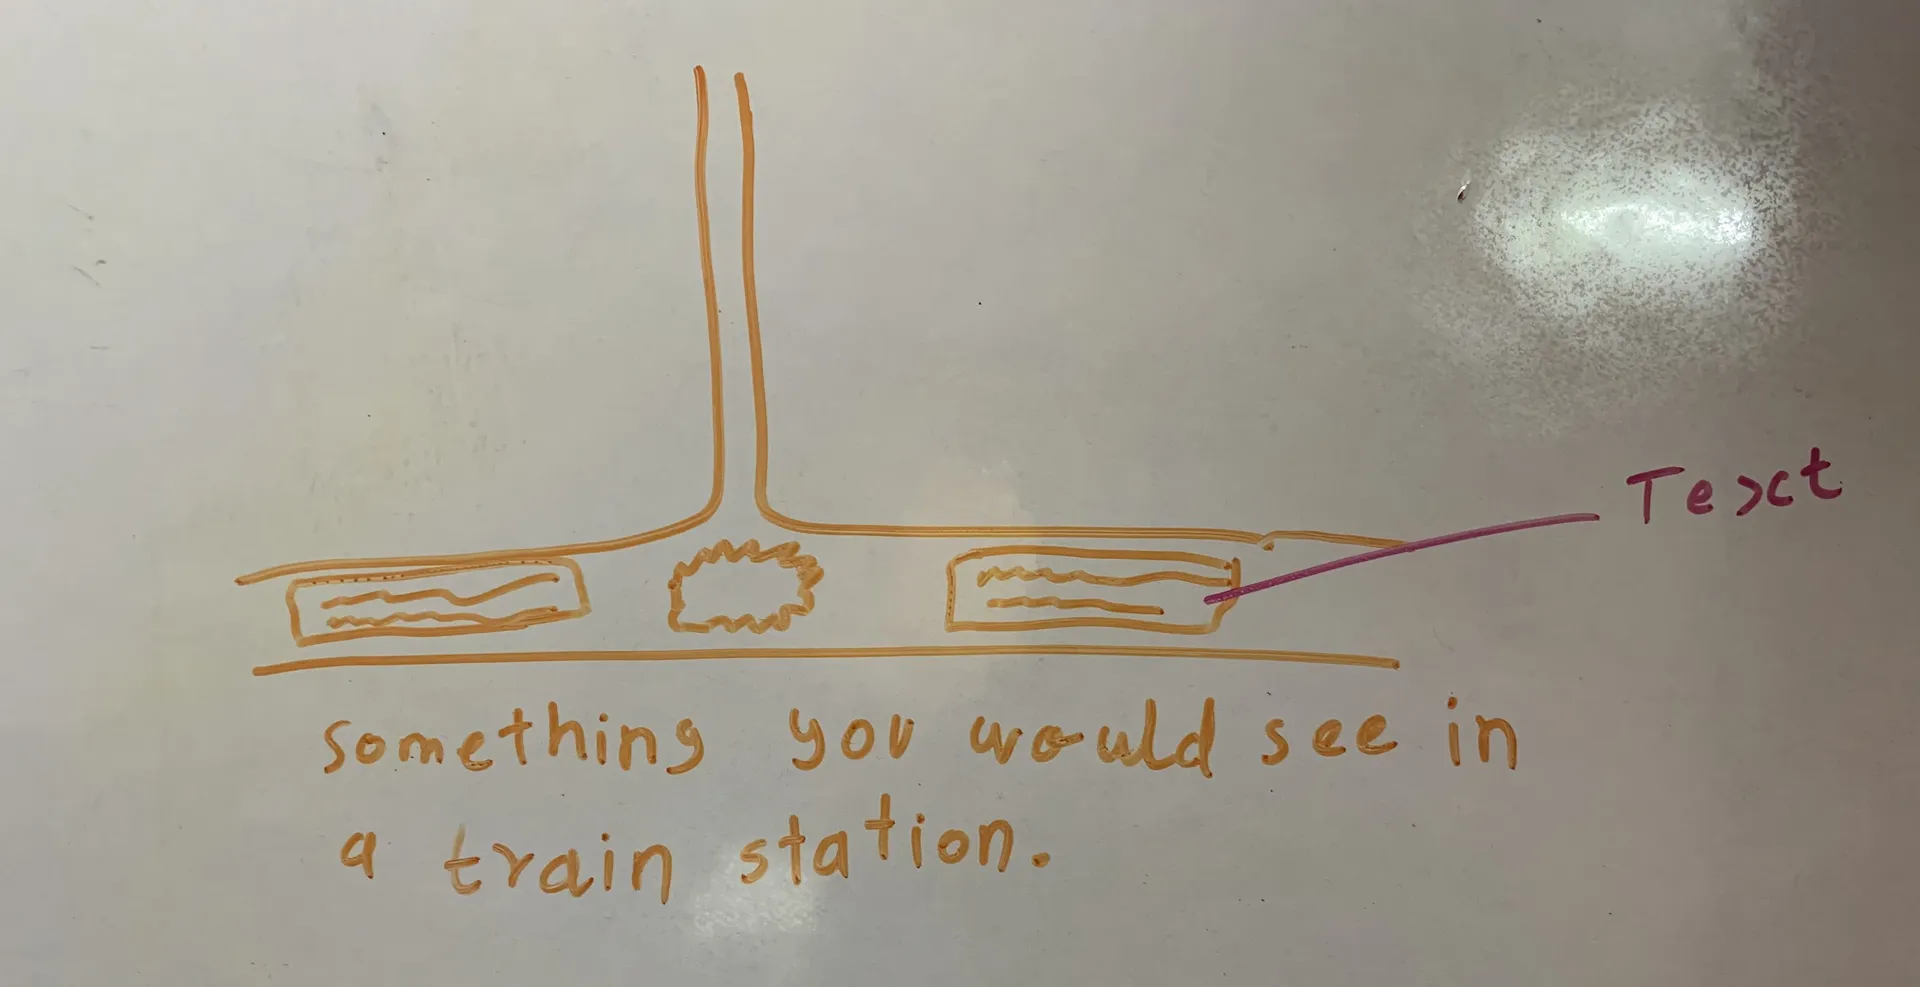 Text
something you would see in
a train station.